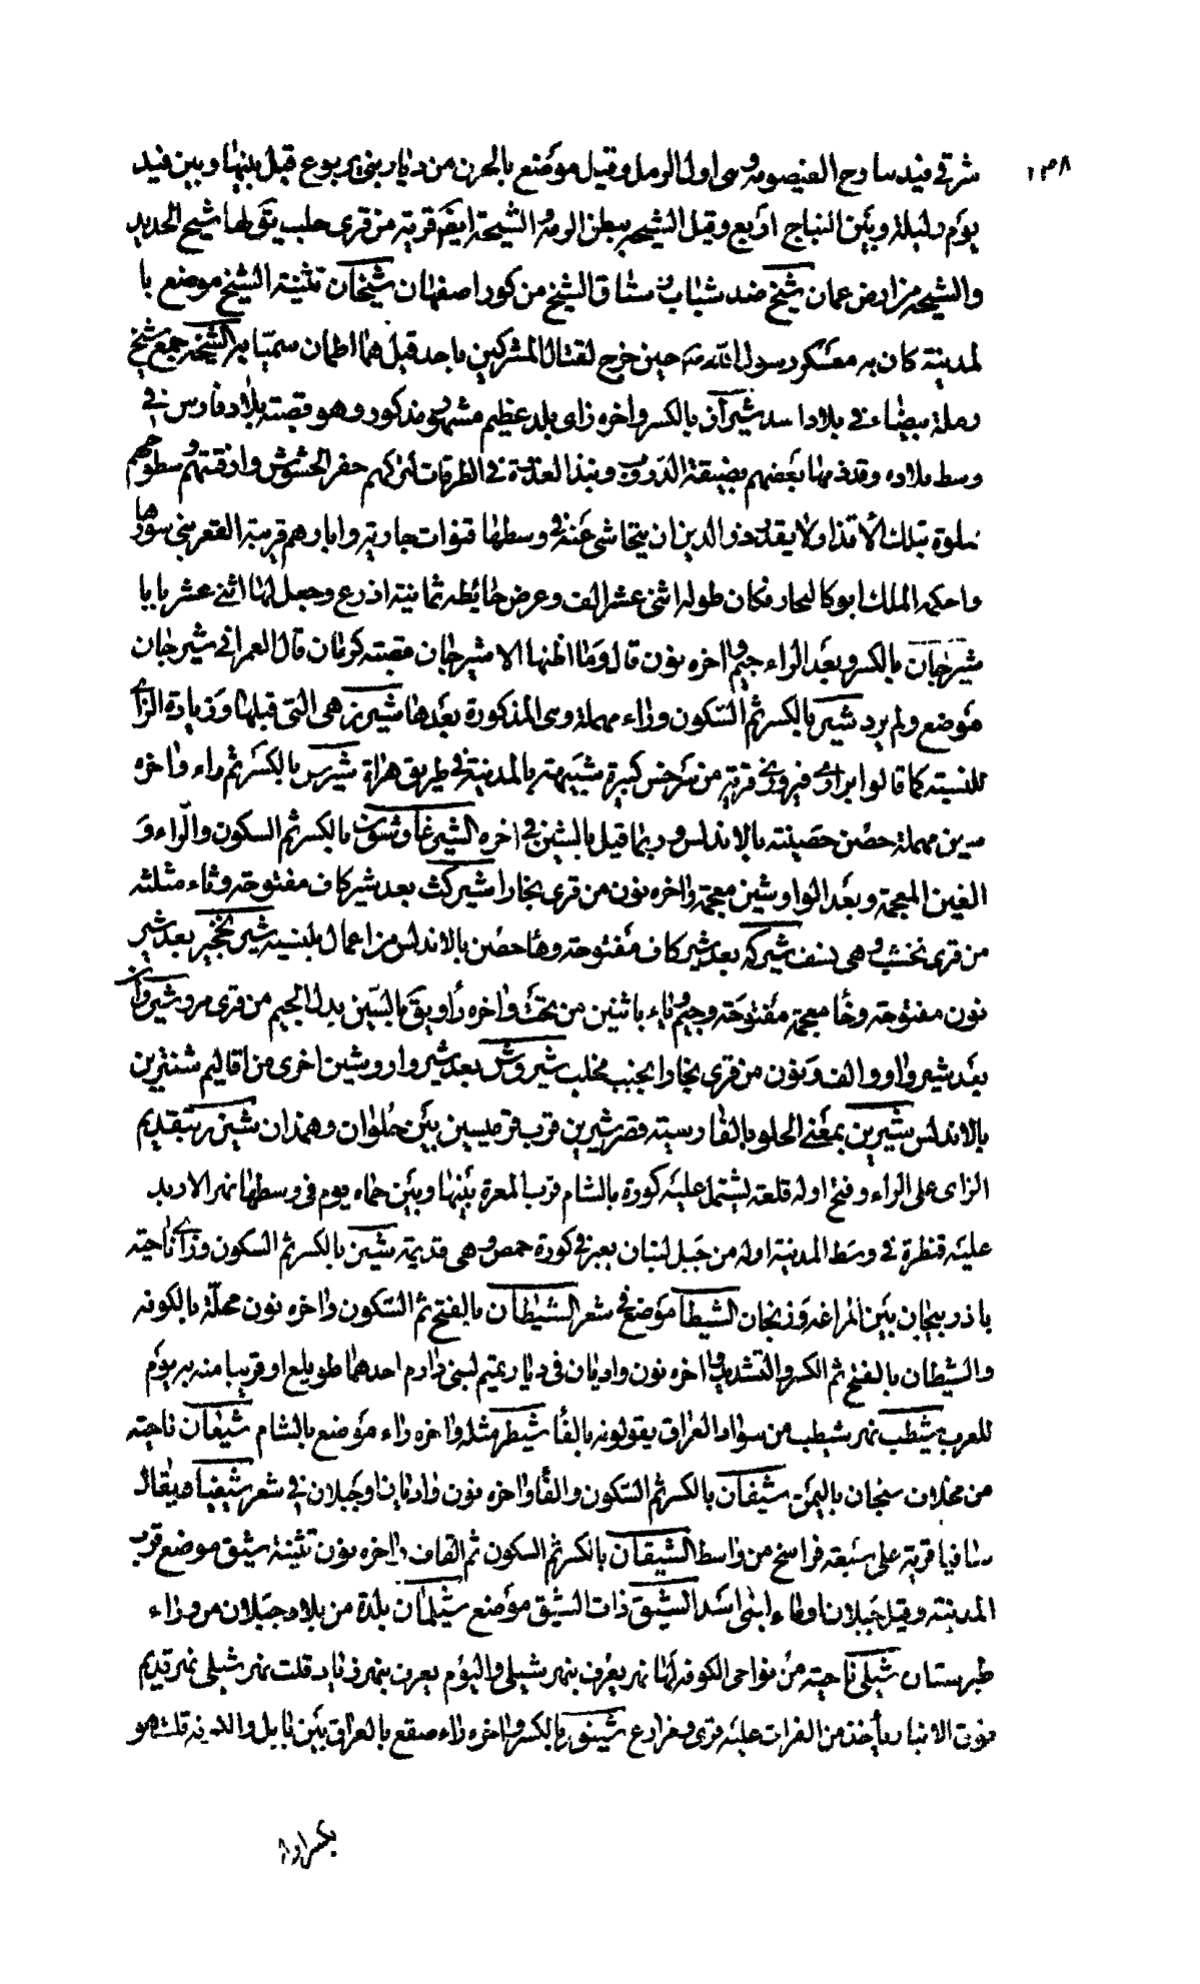 ١٣٨
شرقي فيد سارح القيصومة وهي اول الرمل وقيل موضع بالحزن من ديار بني يربوع قيل بينها وبين فيد
يوم وليلة وبين النباج اربع وقيل الشيحه ببطن الرمه والشيحة ايضا قرية من قرى حلب يقولها شيح الحديد
والشيحه من ارض عمان شيخ ضد شباب رستاق الشيخ من كور اصفهان شيخان تثنية الشيخ موضع با
لمدينة كان به معسكر رسول الله حين خرج لقتال المشركين باحد قيل هما اطمان سميتا به الشيخه جمع شيخ
رملة بيضاء في بلاد اسد شيراز بالكسر واخره زاى بلد عظيم مشهور مذكور وهو قصبة بلاد فارس في
وسط بلاده وقد ذمها بعضهم بضيقة الدروب ونبذ العذرة في الطرقات لتركهم حفر الحشوش وازقتهم وسطوحهم
مملوة بتلك الاقذار لا يقدر ذو الدين ان يتحاشى عنه في وسطها قنوات جارية وابارهم قريبة القعر بنى سورها
واحكمه الملك ابو كاليجار فكان طوله اثنى عشر الف وعرض حائطه ثمانية اذرع وجعل لها اثنى عشر بابا
شيرجان بالكسر وبعد الراء جيم واخره نون قال وما اظنها الا سيرجان قصبته كرمان قال العمراني شيرجان
موضع ولم يرد شير بالكسر ثم السكون وراء مهملة وهي المذكورة بعدها شيرز هي التي قبلها وزيادة الزاي
للنسبته كما قالوا رازى قرية من سرخس كبيرة شبيهة بالمدينة في طريق هراة شيرس بالكسر ثم راء واخره
سين مهملة حصن حصينته بالاندلس وربما قيل بالشين في اخره الشيرغاوشون بالكسر ثم السكون والراء و
الغين المعجمة وبعد الواو شين معجمة واخره نون من قرى بخارا شيركث بعد شير كاف مفتوحة وثاء مثلثه
من قرى نخشب وهي نسف شيركه بعد شير كاف مفتوحة وها حصن بالاندلس من اعمال بلنسيه شيرنخجير بعد شير
نون مفتوحة وخا معجمة مفتوحة وجيم وياء باثنين من تحت واخره را ويق بالشين بدل الجيم من قرى مرو شيروان
بعد شير واو والف ونون من قرى بخارا بجنب مخلب شيروش بعد شير واو وشين اخرى من اقاليم شنترين
بالاندلس شيرين بمعنى الحلو بالفارسيته قصر شيرين قرب قرميسين بين حلوان وهمذان شيزر بتقديم
الزاى على الراء وفتح اوله قلعة لشتمل عليه كورة بالشام قرب المعرة بينها وبين حماه يوم في وسطها نهر الاردن
عليه قنطرة في وسط المدينة اوله من جبل لبنان يعبر في كورة حمص وهي قديمة شيز بالكسر ثم السكون وزاي ناحية
باذربيجان بين المراغه وزنجان الشيطا موضع في شعر الشيطان بالفتح ثم السكون واخره نون محلة بالكوفه
والشيطان بالفتح ثم الكسر والتشديد واخره نون واديان في ديار تميم لبني دارم احدهما طويلع او قريبا منه به يوم
للعرب شيطب نهر شيطب من سواد العراق يقولونه بالفا شيطر مثله واخره راء موضع بالشام شيعان ناحية
من مخلاف سنجان باليمن شيفان بالكسر ثم السكون والفا واخره نون واديان او جبلان في شعر شيفيا ويقال
شافيا قرية على سبعة فراسخ من واسط الشيقان بالكسر ثم السكون ثم القاف واخره نون تثنية شيق موضع قرب
المدينة وقيل جبلان او ماء لبني اسد الشيق ذات الشيق موضع شيلمان بلدة من بلاد جيلان من وراء
طبرستان شيلى ناحية من نواحى الكوفه لها نهر يعرف بنهر شيلى واليوم يعرف بنهر زياد قلت نهر شيلى نهر قديم
فوق الانبار يأخذ من الفرات عليه قرى ومزارع شينور بالكسر واخره راء صقع بالعراق بين بابل والكوفه قلت هو
بكسر اوله